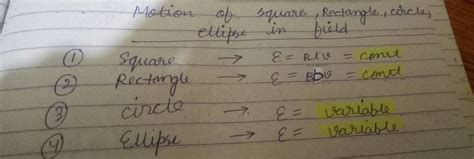 Motion of square, Rectangle, circle,
ellipse in field
① Square → ε = Blv = const
② Rectangle → ε = Bbv = const
③ circle → ε = variable
④ Ellipse → ε = variable